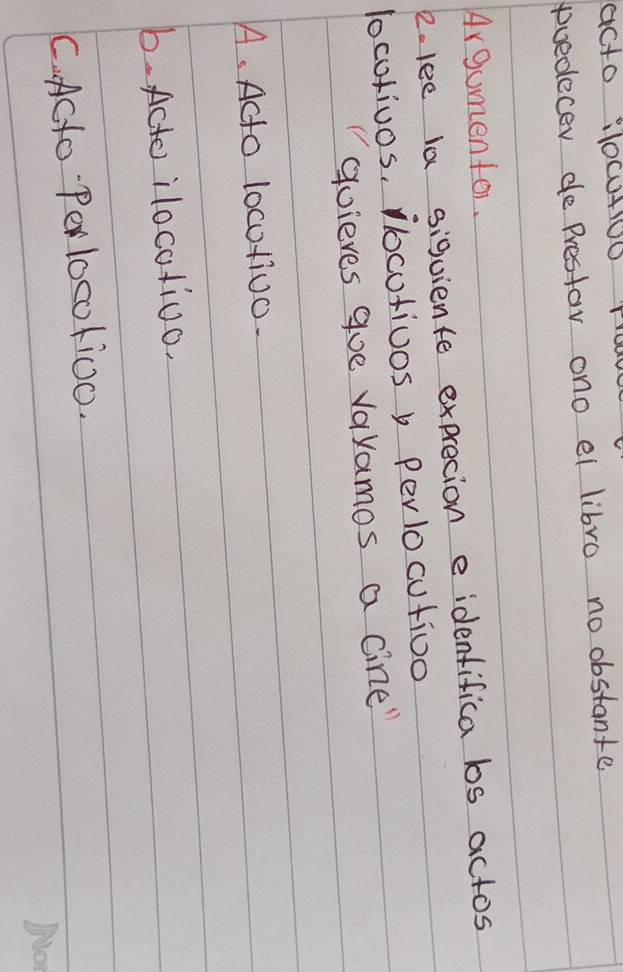 acto ilocutivo
puedecer de Prestar ono el libro no obstante
Argumenta.
2. lee la siguiente exprecion e identifica los actos
locutivos, ilocutivos y perlocutivo
"quieres que vayamos a cine"
A. Acto locutivo.
b. Acto ilocutivo.
C. Acto Perlocutivo.
Nor